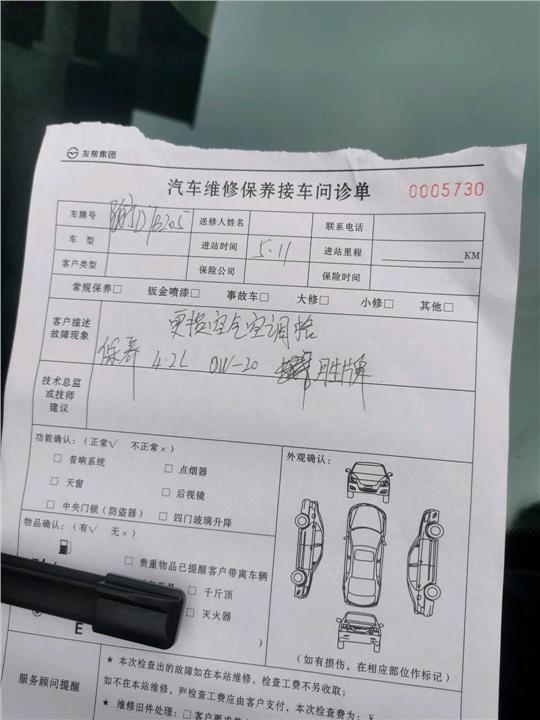 友帮集团
汽车维修保养接车问诊单 0005730
车牌号 送修人姓名 联系电话
车 型 进站时间 5.11 进站里程 KM
客户类型 保险公司 保险时间
常规保养□ 钣金喷漆□ 事故车□ 大修□ 小修□ 其他□
客户描述
故障现象
更换空气空调格
保养 4.2L 0W-20 胜牌
技术总监
或技师
建议
功能确认:(正常√ 不正常×) 外观确认:
□ 音响系统 □ 点烟器
□ 天窗 □ 后视镜
□ 中央门锁(防盗器) □ 四门玻璃升降
物品确认:(有√ 无×)
□ 贵重物品已提醒客户带离车辆
□ 千斤顶
□ 灭火器
E )
(如有损伤,在相应部位作标记)
服务顾问提醒
★ 本次检查出的故障如在本站维修,检查工费不另收取;
如不在本站维修,则检查工费应由客户支付,本次检查费为:¥
★ 维修旧件处理:□ 客户要求带